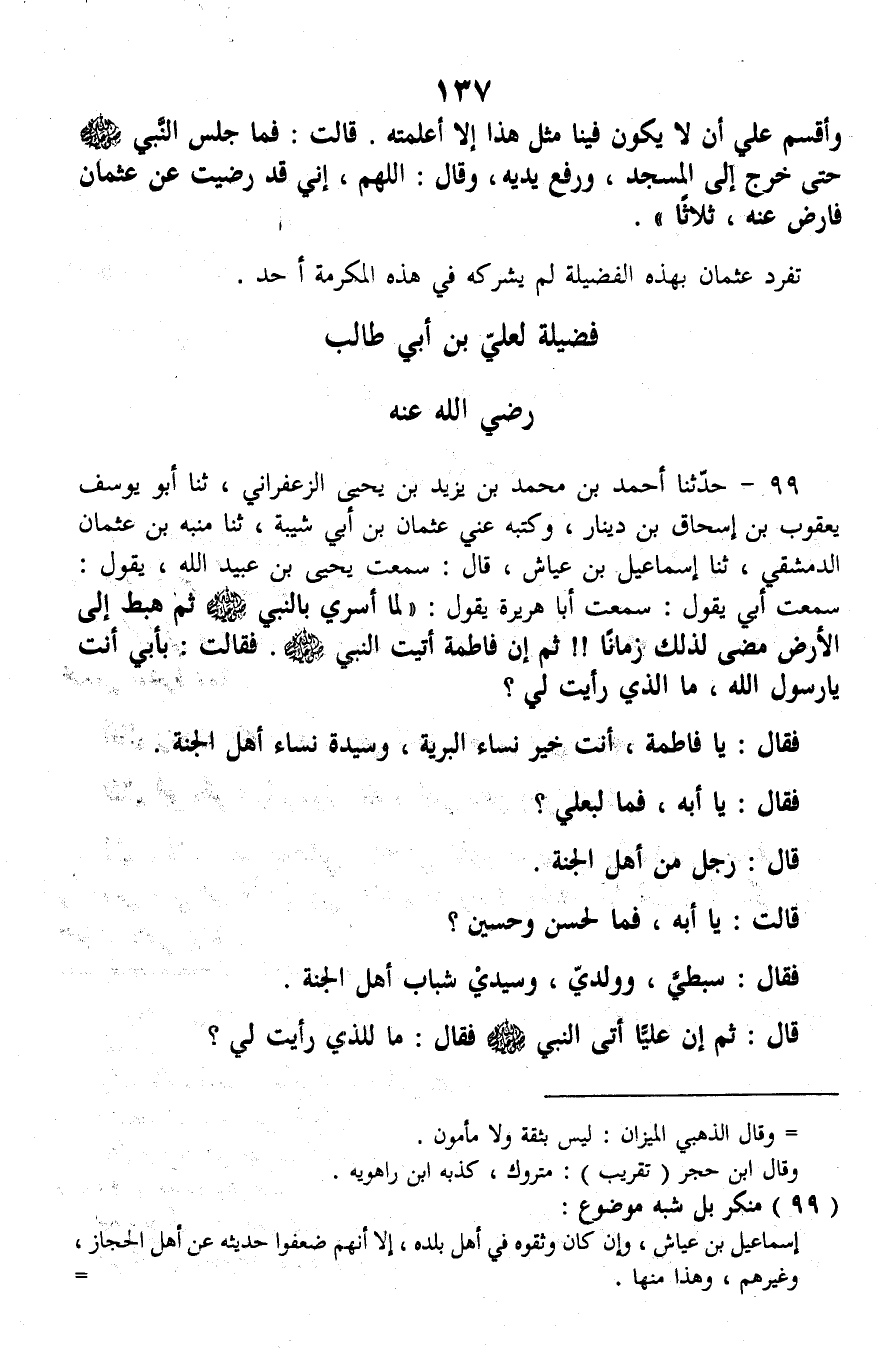 ١٣٧
وأقسم علي أن لا يكون فينا مثل هذا إلا أعلمته . قالت : فما جلس النَّبي ﷺ
حتى خرج إلى المسجد ، ورفع يديه ، وقال : اللهم ، إني قد رضيت عن عثمان
فارض عنه ، ثلاثًا » .
تفرد عثمان بهذه الفضيلة لم يشركه في هذه المكرمة أ حد .
فضيلة لعليّ بن أبي طالب
رضي الله عنه
٩٩ - حدّثنا أحمد بن محمد بن يزيد بن يحيى الزعفراني ، ثنا أبو يوسف
يعقوب بن إسحاق بن دينار ، وكتبه عني عثمان بن أبي شيبة ، ثنا منبه بن عثمان
الدمشقي ، ثنا إسماعيل بن عياش ، قال : سمعت يحيى بن عبيد الله ، يقول :
سمعت أبي يقول : سمعت أبا هريرة يقول : « لما أسري بالنبي ﷺ ثم هبط إلى
الأرض مضى لذلك زمانًا !! ثم إن فاطمة أتيت النبي ﷺ . فقالت : بأبي أنت
يارسول الله ، ما الذي رأيت لي ؟
فقال : يا فاطمة ، أنت خير نساء البرية ، وسيدة نساء أهل الجنة .
فقال : يا أبه ، فما لبعلي ؟
قال : رجل من أهل الجنة .
قالت : يا أبه ، فما لحسن وحسين ؟
فقال : سبطيَّ ، وولديّ ، وسيديْ شباب أهل الجنة .
قال : ثم إن عليًّا أتى النبي ﷺ فقال : ما للذي رأيت لي ؟
= وقال الذهبي الميزان : ليس بثقة ولا مأمون .
وقال ابن حجر ( تقريب ) : متروك ، كذبه ابن راهويه .
( ٩٩ ) منكر بل شبه موضوع :
إسماعيل بن عياش ، وإن كان وثقوه في أهل بلده ، إلا أنهم ضعفوا حديثه عن أهل الحجاز ،
وغيرهم ، وهذا منها . =